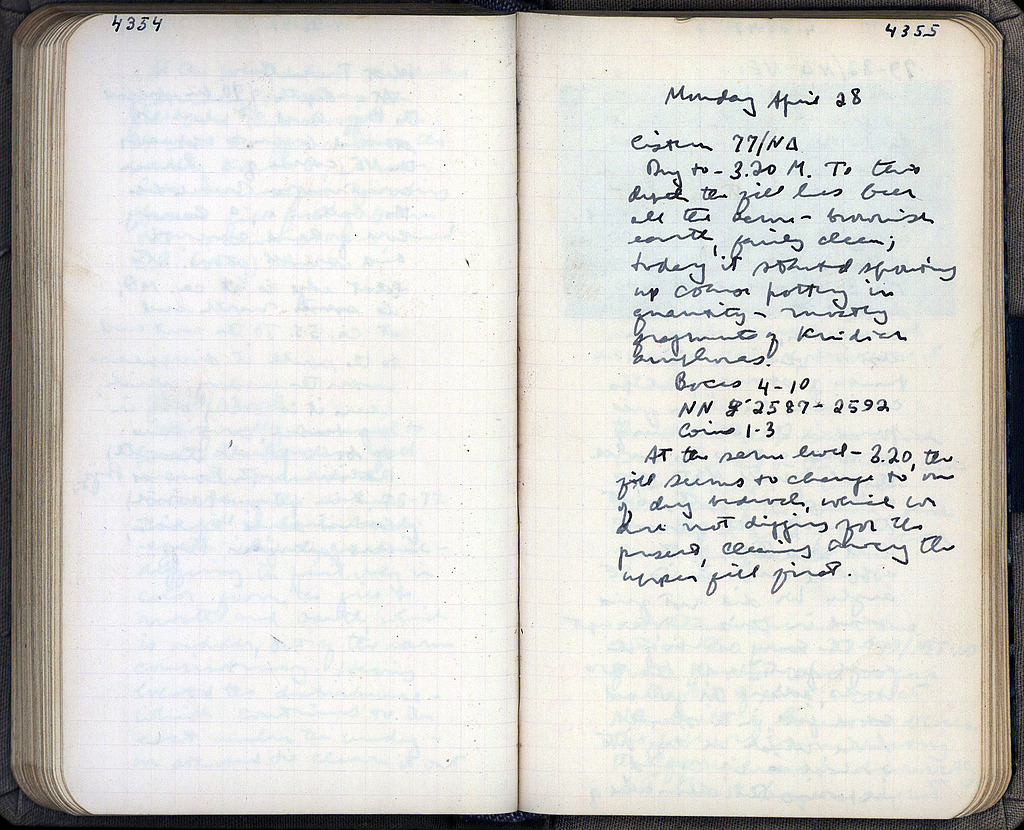 4354
4355
Monday April 28
Cistern 77/ΝΔ
Dug to - 3.20 M. To this
depth the fill has been
all the same - brownish
earth, fairly clean;
today it started spouting
up coarse pottery in
quantity - mostly
fragments of Knidian
amphoras.
Boxes 4-10
NN 2587-2592
Coins 1-3
At the same level - 3.20, the
fill seems to change to one
of dug bedrock, which we
are not digging for the
present, clearing away the
upper fill first.